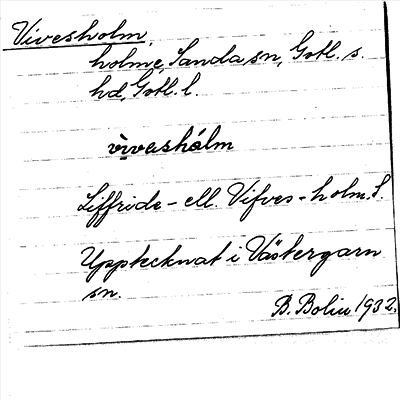 Vivesholm,
holme, Sanda sn, Gotl. s.
hd, Gotl. l.
vìvashålm
Liffride- ell. Vifves-holm. S.
Upptecknat i Västergarn
sn.
B. Bolin 1932.